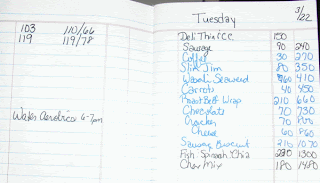 103 110/66
119 119/78
Water Aerobics 6-7pm
Tuesday 3/22
Deli Thin ECC 150
Sausage 90 240
Coffee 30 270
Slim Jim 80 350
Wasabi Seaweed 60 410
Carrots 40 450
Roast Beef Wrap 210 660
Chocolate 70 730
Cracker 70 800
Cheese 60 860
Sausage Biscuit 210 1070
Fish Spinach Chia 230 1300
Chex Mix 180 1480